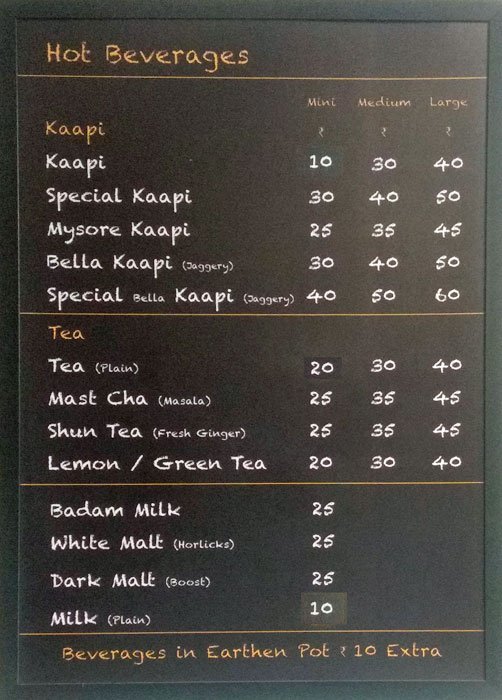 Hot Beverages
Mini Medium Large
Kaapi ₹ ₹ ₹
Kaapi 10 30 40
Special Kaapi 30 40 50
Mysore Kaapi 25 35 45
Bella Kaapi (Jaggery) 30 40 50
Special Bella Kaapi (Jaggery) 40 50 60
Tea
Tea (Plain) 20 30 40
Mast Cha (Masala) 25 35 45
Shun Tea (Fresh Ginger) 25 35 45
Lemon / Green Tea 20 30 40
Badam Milk 25
White Malt (Horlicks) 25
Dark Malt (Boost) 25
Milk (Plain) 10
Beverages in Earthen Pot ₹ 10 Extra